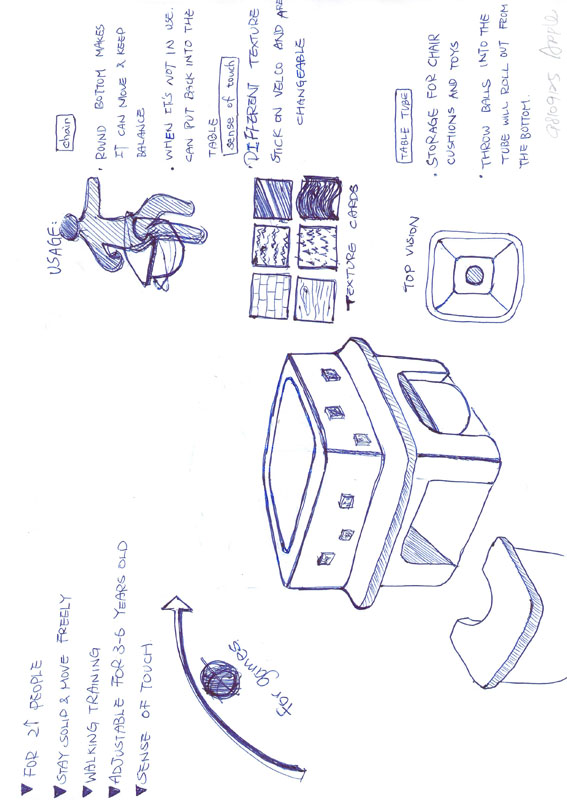 ▼ FOR 2↑ PEOPLE
▼ STAY SOLID & MOVE FREELY
▼ WALKING TRAINING
▼ ADJUSTABLE FOR 3-6 YEARS OLD
▼ SENSE OF TOUCH
for games
USAGE:
chair
• ROUND BOTTOM MAKES
IT CAN MOVE & KEEP
BALANCE
• WHEN IT'S NOT IN USE.
CAN PUT BACK INTO THE
TABLE
sense of touch
• DIFFERENT TEXTURE
STICK ON VELCO AND ARE
CHANGEABLE
TEXTURE CARDS
TABLE TUBE
• STORAGE FOR CHAIR
CUSHIONS AND TOYS
• THROW BALLS INTO THE
TUBE WILL ROLL OUT FROM
THE BOTTOM.
TOP VISION
Apple